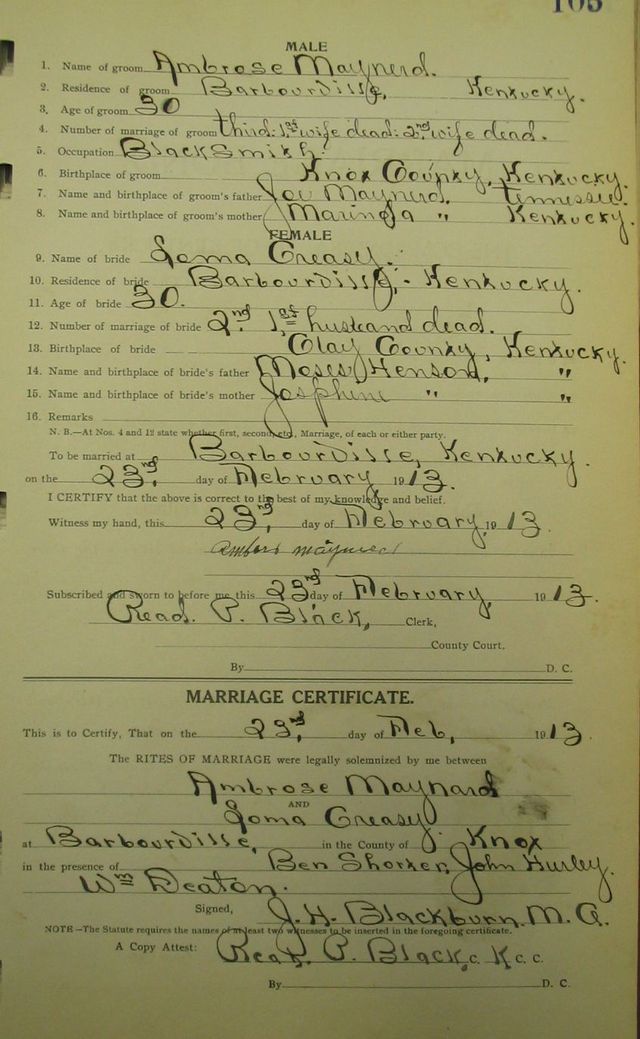 105
MALE
1. Name of groom Ambrose Maynerd.
2. Residence of groom Barbourville, Kentucky.
3. Age of groom 30
4. Number of marriage of groom third: 1st wife dead: 2nd wife dead.
5. Occupation BlackSmith:
6. Birthplace of groom Knox County, Kentucky.
7. Name and birthplace of groom's father Maynerd. Tennessee.
8. Name and birthplace of groom's mother " Kentucky.
FEMALE
9. Name of bride Loma Creasy.
10. Residence of bride Barbourville, - Kentucky.
11. Age of bride 30.
12. Number of marriage of bride 2nd 1st husband dead.
13. Birthplace of bride Clay County, Kentucky.
14. Name and birthplace of bride's father Moses Henson, "
15. Name and birthplace of bride's mother Josphine " "
16. Remarks
N. B.—At Nos. 4 and 12 state whether first, second, etc., Marriage, of each or either party.
To be married at Barbourville, Kentucky.
on the 23rd, day of February 1913.
I CERTIFY that the above is correct to the best of my knowledge and belief.
Witness my hand, this 23rd, day of February, 1913.
Subscribed and sworn to before me this 23rd day of February, 1913.
Read. P. Black, Clerk,
County Court.
By D. C.
MARRIAGE CERTIFICATE.
This is to Certify, That on the 23rd, day of Feb, 1913.
The RITES OF MARRIAGE were legally solemnized by me between
Ambrose Maynard
AND
Loma Creasy
at Barbourville, in the County of Knox
in the presence of Ben John Hurley.
Wm Deaton.
Signed, J. H. Blackburn. M. G.
NOTE—The Statute requires the names of at least two witnesses to be inserted in the foregoing certificate.
A Copy Attest: Read. P. Black, C. K C. C.
By D. C.